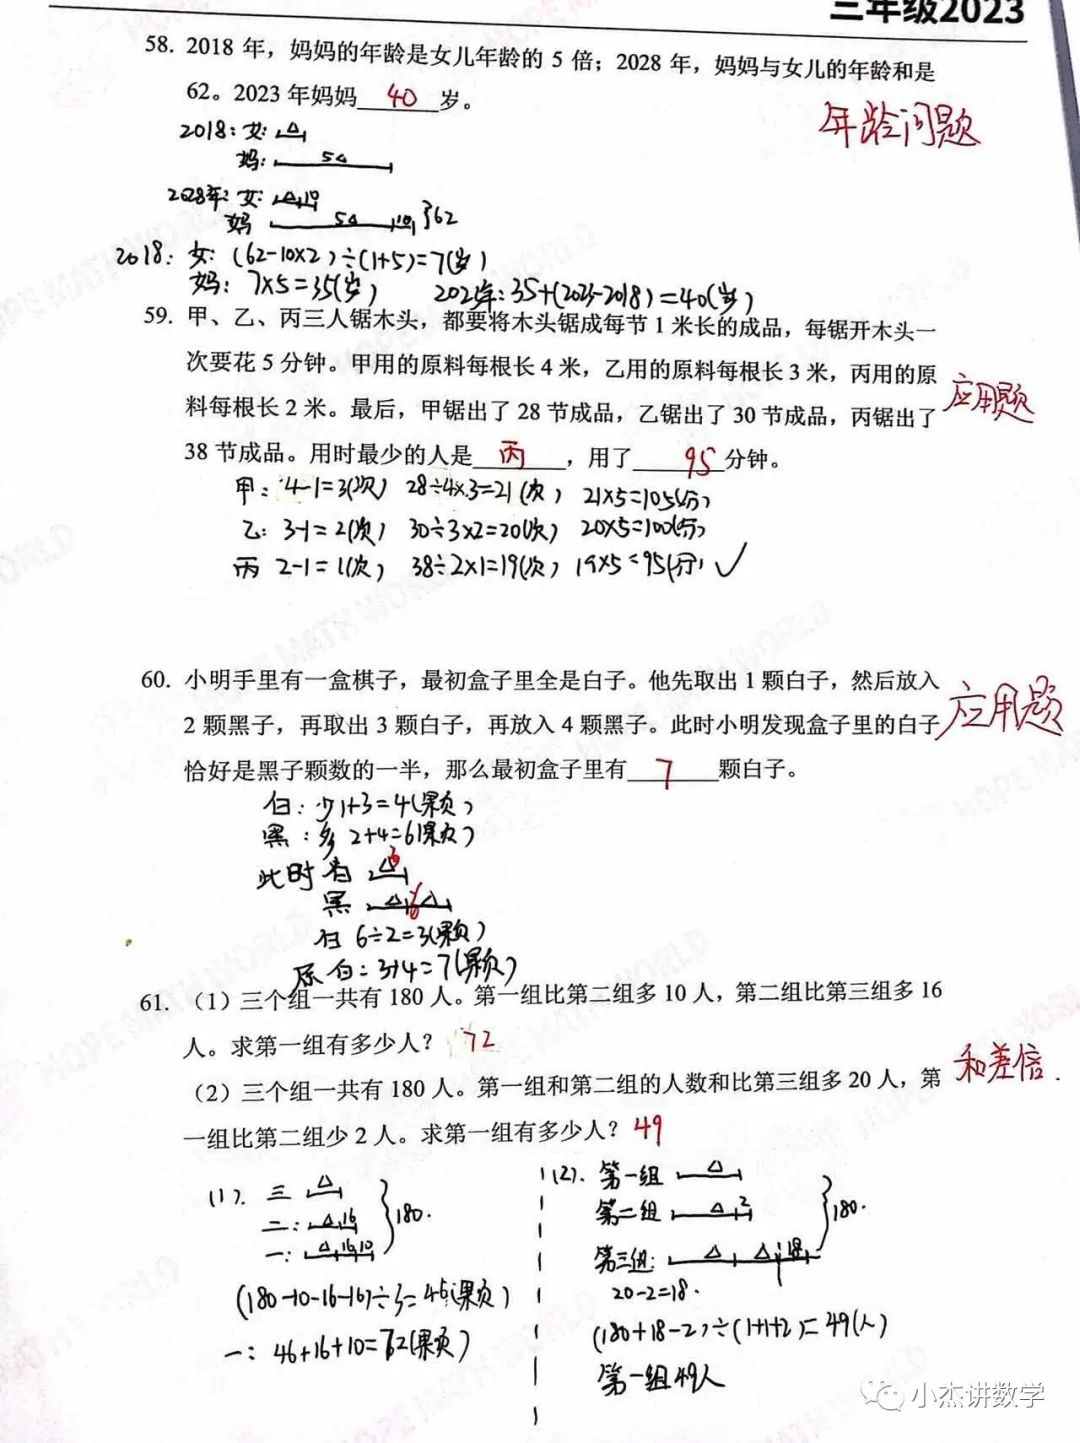 三年级2023
58. 2018 年，妈妈的年龄是女儿年龄的 5 倍；2028 年，妈妈与女儿的年龄和是
62。2023 年妈妈 40 岁。
年龄问题
2018: 女: △
妈: 5△
2028年: 女: △ 10
妈 5△ 10 }62
2018: 女: (62-10×2)÷(1+5)=7(岁)
妈: 7×5=35(岁) 2023年: 35+(2023-2018)=40(岁)
59. 甲、乙、丙三人锯木头，都要将木头锯成每节 1 米长的成品，每锯开木头一
次要花 5 分钟。甲用的原料每根长 4 米，乙用的原料每根长 3 米，丙用的原
料每根长 2 米。最后，甲锯出了 28 节成品，乙锯出了 30 节成品，丙锯出了
应用题
38 节成品。用时最少的人是 丙 ，用了 95 分钟。
甲: 4-1=3(次) 28÷4×3=21(次) 21×5=105(分)
乙: 3-1=2(次) 30÷3×2=20(次) 20×5=100(分)
丙 2-1=1(次) 38÷2×1=19(次) 19×5=95(分) ✓
60. 小明手里有一盒棋子，最初盒子里全是白子。他先取出 1 颗白子，然后放入
2 颗黑子，再取出 3 颗白子，再放入 4 颗黑子。此时小明发现盒子里的白子
应用题
恰好是黑子颗数的一半，那么最初盒子里有 7 颗白子。
白: 少1+3=4(颗)
黑: 多 2+4=6(颗)
此时 白 △ 3
黑 △ △ 6
白 6÷2=3(颗)
原白: 3+4=7(颗)
61. （1）三个组一共有 180 人。第一组比第二组多 10 人，第二组比第三组多 16
人。求第一组有多少人？ 72
（2）三个组一共有 180 人。第一组和第二组的人数和比第三组多 20 人，第
和差倍.
一组比第二组少 2 人。求第一组有多少人？ 49
(1). 三 △
二: △ 16 }180.
一: △ 16 10
(180-10-16-16)÷3=46(颗)
一: 46+16+10=72(颗)
(2). 第一组 △
第二组 △ 2 }180.
第三组: △ △ 18
20-2=18.
(180+18-2)÷(1+1+2)=49(人)
第一组49人
小杰讲数学